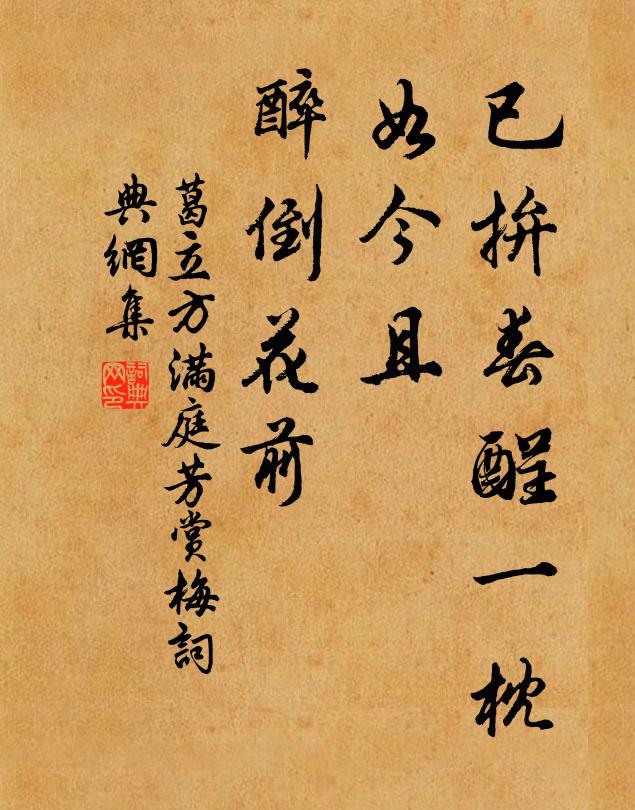 已拚春酲一枕
如今且
醉倒花前
葛立方满庭芳赏梅詞
典網集
詞典网印